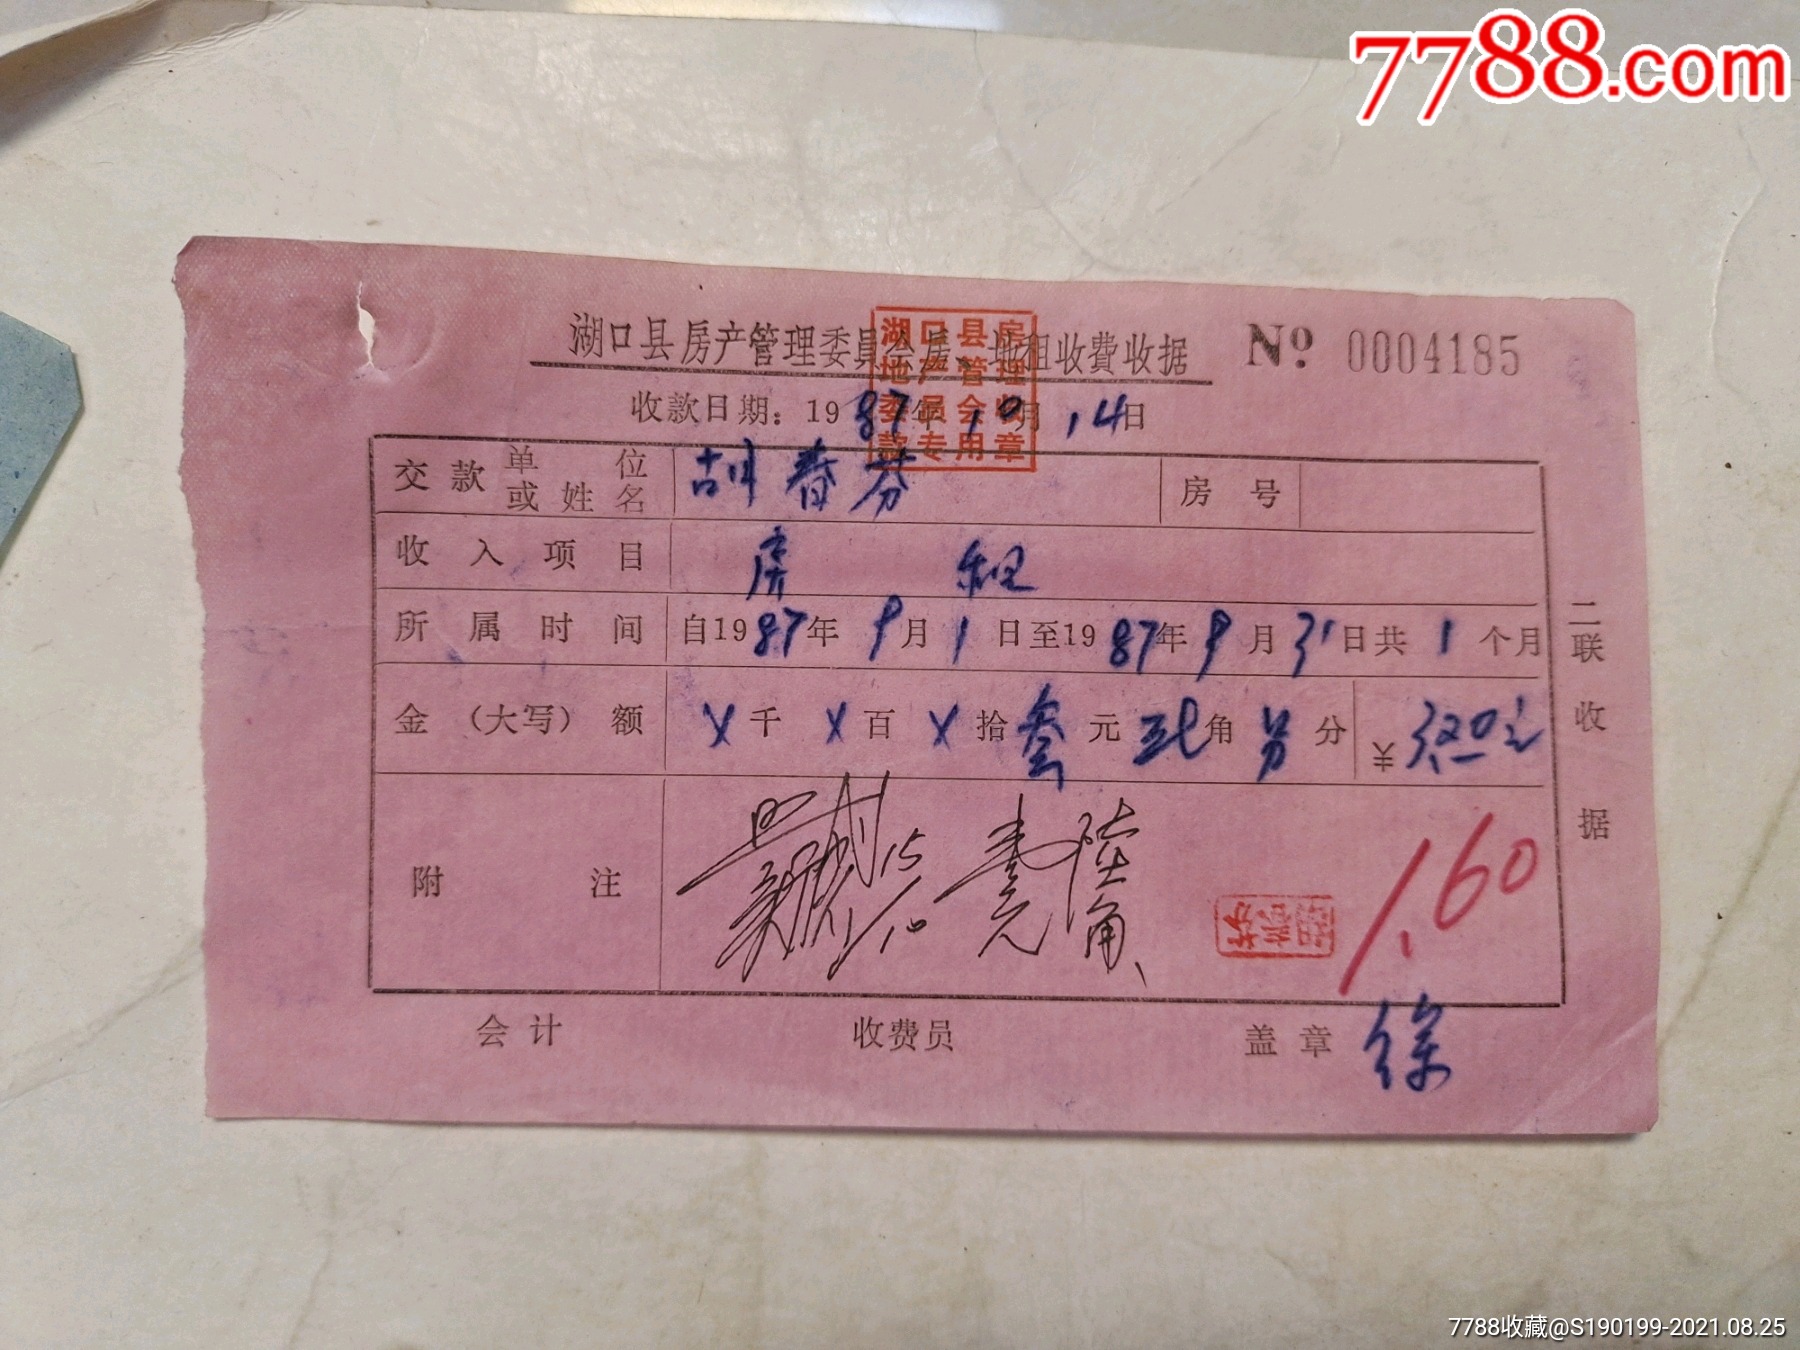 7788.com
湖口县房产管理委员会房、地租收费收据 Nº 0004185
湖口县房
地产管理
委员会收
款专用章
收款日期：1987年10月14日
交款单位或姓名 胡春芬 房号
收入项目 房租
所属时间 自1987年9月1日至1987年9月31日共1个月
金（大写）额 X千X百X拾叁元 角 分 ¥3.20元
附注 15/10 壹元陆角 1.60
胡春芬
会计 收费员 盖章 徐
二联收据
7788收藏@S190199-2021.08.25